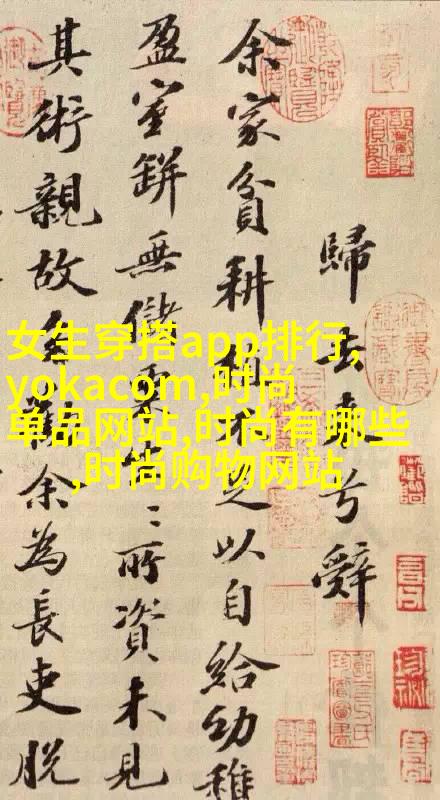 女生穿搭app排行,
yokacom,时尚
单品网站,时尚有哪些
,时尚购物网站
歸去来兮辭
余家貧耕植不足以自給幼稚
盈室缾無儲粟生〻所資未見
其術親故多勸余為長吏脱